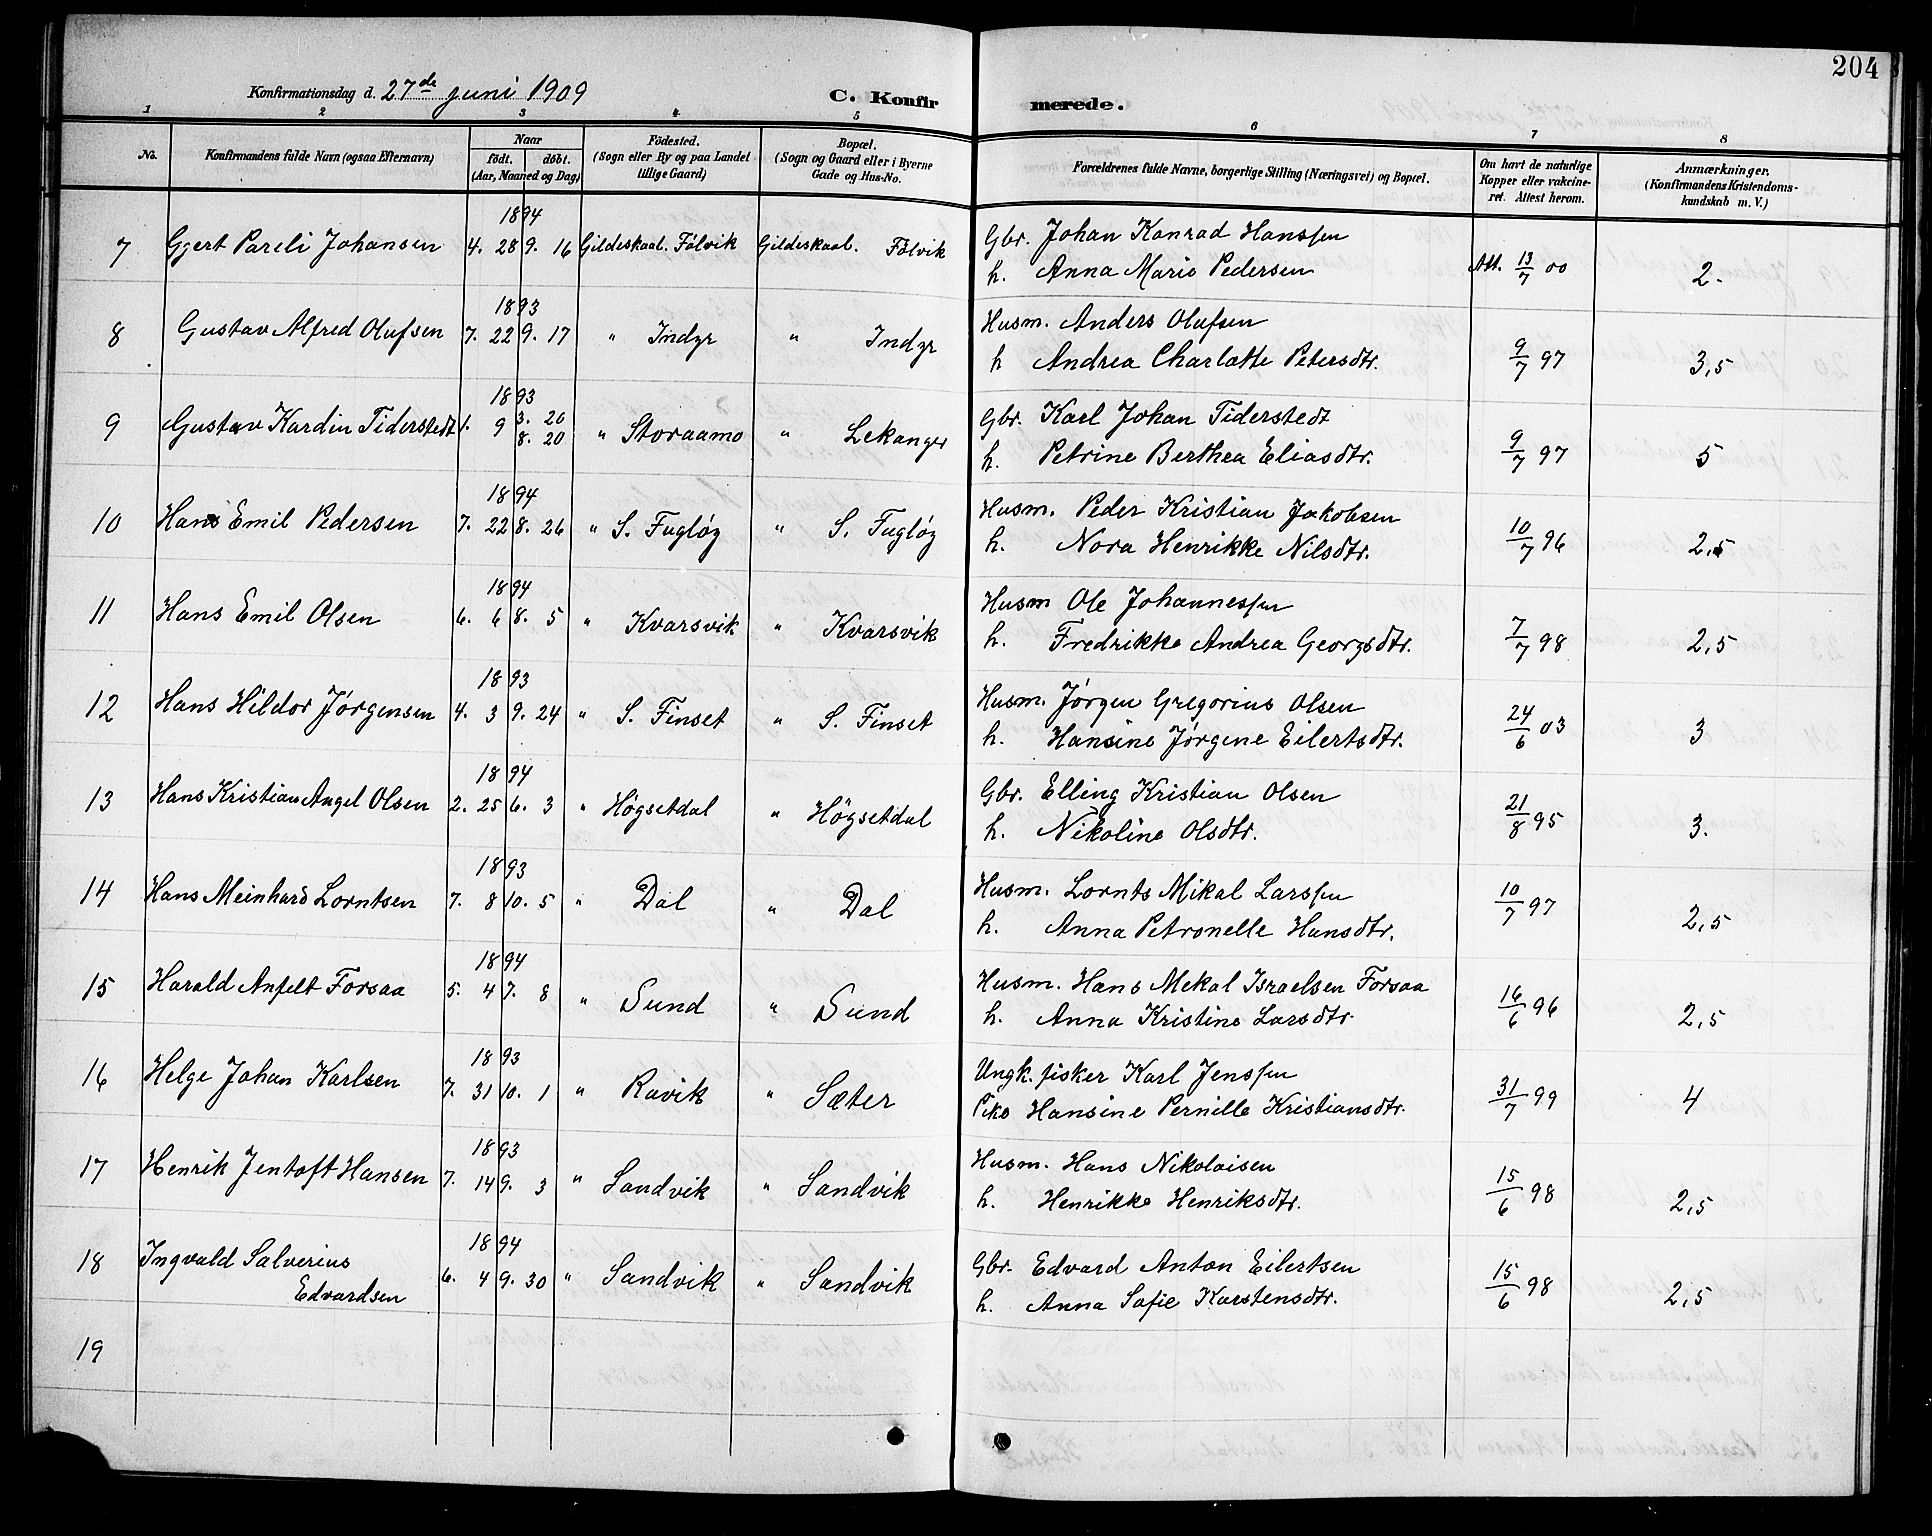 204
Konfirmationsdag d. 27de juni 1909
C. Konfirmerede.
1 2 3 4 5 6 7 8
No. Konfirmandens fulde Navn (ogsaa Efternavn) Naar født. døbt. (Aar, Maaned og Dag) Födested. (Sogn eller By og paa Landet tillige Gaard) Bopæl. (Sogn og Gaard eller i Byerne Gade og Hus-No. Forældrenes fulde Navne, borgerlige Stilling (Næringsvei) og Bopæl. Om havt de naturlige Kopper eller vakcineret. Attest herom. Anmærkninger. (Konfirmandens Kristendomskundskab m. V.)
1894
7 Ggert Pareli Johansen 4. 28 9. 16 Gildeskaal. Fölvik Gildeskaal. Fölvik Gbr. Johan Konrad Hanssen
h. Anna Marie Pedersen Att. 13/7 00 2.
1893
8 Gustav Alfred Olufsen 7. 22 9. 17 " Indyr " Indyr Husm. Anders Olufsen
h Andrea Charlotte Petersdtr. 9/7 97 3,5
1893
9 Gustav Kardin Tiderstedt 1. 9 3. 20 8. 20 " Storaamo " Lekanger Gbr. Karl Johan Tiderstedt
h. Petrine Berthea Eliasdtr. 9/7 97 5
1894
10 Hans Emil Pedersen 7. 22 8. 26 " S. Fugløy " S. Fugløy Husm. Peder Kristian Jakobsen
h. Nora Henrikke Nilsdtr. 10/7 96 2,5
1894
11 Hans Emil Olsen 6. 6 8. 5 " Kvarsvik " Kvarsvik Husm Ole Johannessen
h. Fredrikke Andrea Georgsdtr. 7/7 98 2,5
1893
12 Hans Hildor Jørgensen 4. 3 9. 24 " S. Finset " S. Finset Husm. Jørgen Gregorius Olsen
h. Hansine Jørgene Eilertsdtr. 24/6 03 3
1894
13 Hans Kristian Angel Olsen 2. 25 6. 3 " Högsetdal " Högsetdal Gbr. Elling Kristian Olsen
h. Nikoline Olsdtr. 21/8 95 3.
1893
14 Hans Meinhard Lorntsen 7. 8 10. 5 " Dal " Dal Husm. Lornts Mikal Larssen
h. Anna Petronelle Hansdtr. 10/7 97 2,5
1894
15 Harald Anfelt Forsaa 5. 4 7. 8 " Sund " Sund Husm. Hans Mekal Israelsen Forsaa
h. Anna Kristine Larsdtr. 16/6 96 2,5
1893
16 Helge Johan Karlsen 7. 31 10. 1 " Ravik " Sæter Ungk. fisker Karl Jenssen
Pike Hansine Pernille Kristiansdtr. 31/7 99 4
1893
17 Henrik Jentoft Hansen 7. 14 9. 3 " Sandvik " Sandvik Husm. Hans Nikolaisen
h. Henrikke Henriksdtr. 15/6 98 2,5
1894
18 Ingvald Salverius
Edvardsen 6. 4 9. 30 " Sandvik " Sandvik Gbr. Edvard Anton Eilertsen
h. Anna Sofie Karstensdtr. 15/6 98 2,5
19